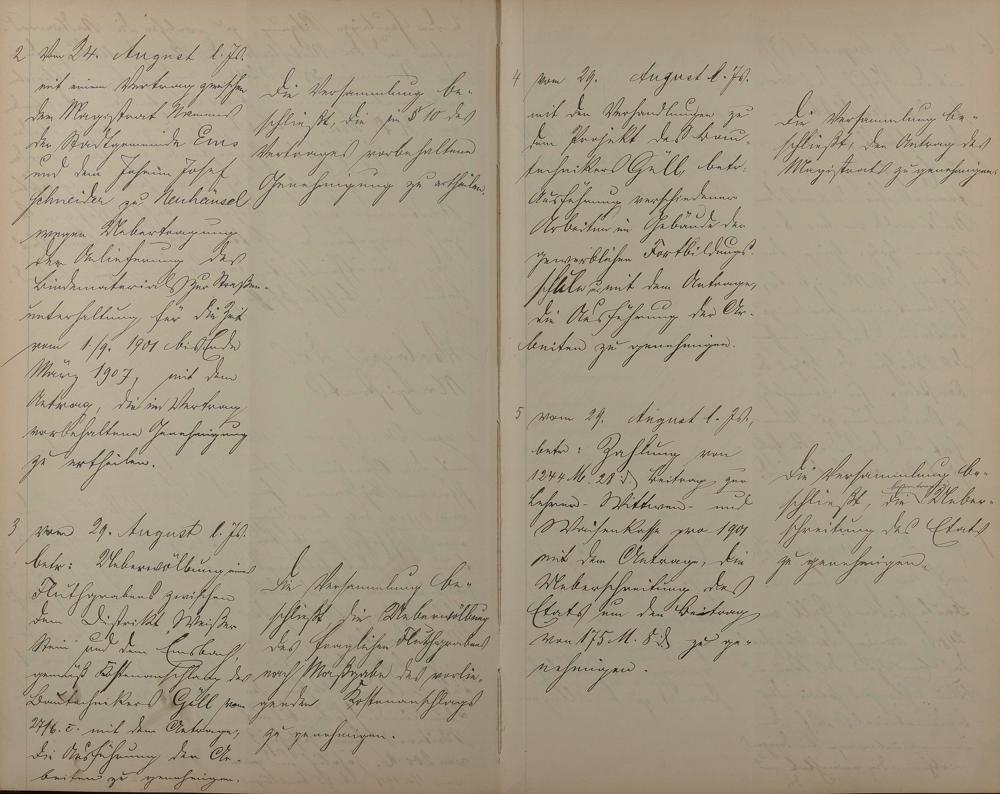 2 Vom 24. August l. Js.
mit einem Vertrag zwischen
dem Magistrat Namens
der Stadtgemeinde Ems
und dem Johann Josef
Schneider zu Neuhäusel
wegen Uebertragung
der Anlieferung des
Bindematerials zur Straßen-
unterhaltung, für die Zeit
vom 1/9. 1901 bis Ende
März 1907, mit dem
Antrag, die im Vertrag
vorbehaltene Genehmigung
zu ertheilen.
Die Versammlung be-
schließt, die in § 10 des
Vertrages vorbehaltene
Genehmigung zu ertheilen.
3 vom 29. August l. Js.
betr: Ueberwölbung eines
Fluthgrabens zwischen
dem Distrikt Weißer
Stein und dem Emsbach,
gemäß Kostenanschlag des
Bautechnikers Güll vom
27/6. c. mit dem Antrage,
die Ausführung der Ar-
beiten zu genehmigen.
Die Versammlung be-
schließt, die Ueberwölbung
des fraglichen Fluthgrabens
nach Maßgabe des vorlie-
genden Kostenanschlags
zu genehmigen.
4 vom 29. August l. Js.
mit den Verhandlungen zu
dem Projekt des Bau-
technikers Güll, betr.
Ausführung verschiedener
Arbeiten im Gebäude der
gewerblichen Fortbildungs-
schule mit dem Antrage,
die Ausführung der Ar-
beiten zu genehmigen.
Die Versammlung be-
schließt, den Antrag des
Magistrats zu genehmigen.
5 vom 29. August l. Js.,
betr: Zahlung von
1244 M. 28 d Beitrag zur
Lehrer- Wittwen- und
Waisenkasse pro 1901
mit dem Antrage, die
Ueberschreitung des
Etats um den Beitrag
von 175 M. 8 d zu ge-
nehmigen.
Die Versammlung be-
schließt, die Ueber-
schreitung des Etats
zu genehmigen.